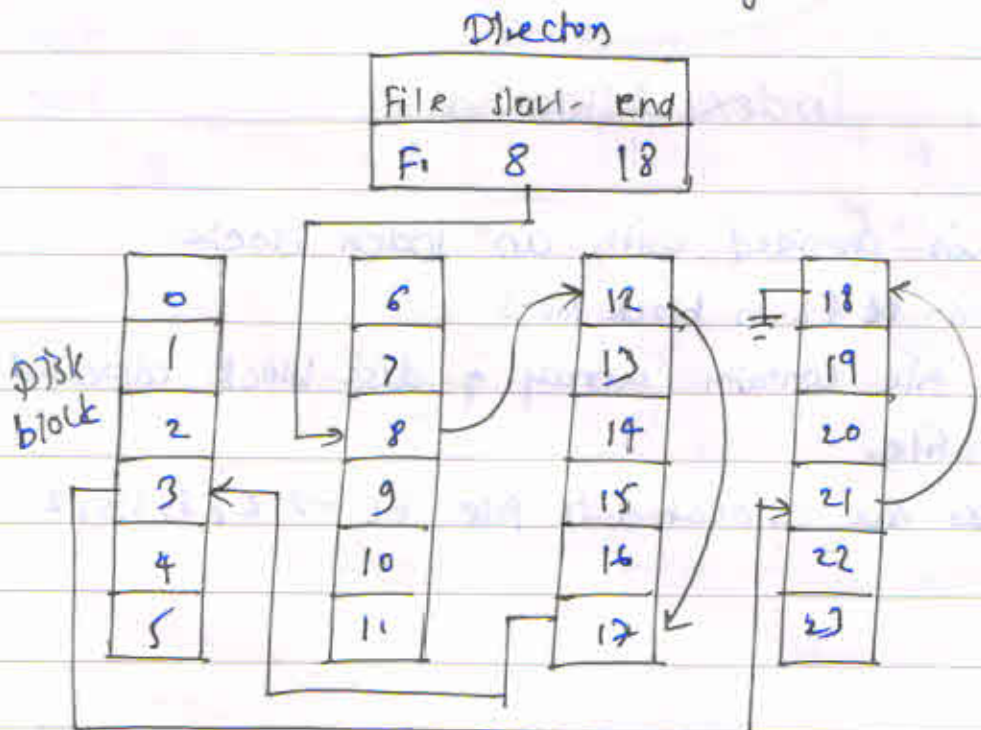 Directory
File start end
F1 8 18
Disk
block
0
1
2
3
4
5
6
7
8
9
10
11
12
13
14
15
16
17
18
19
20
21
22
23